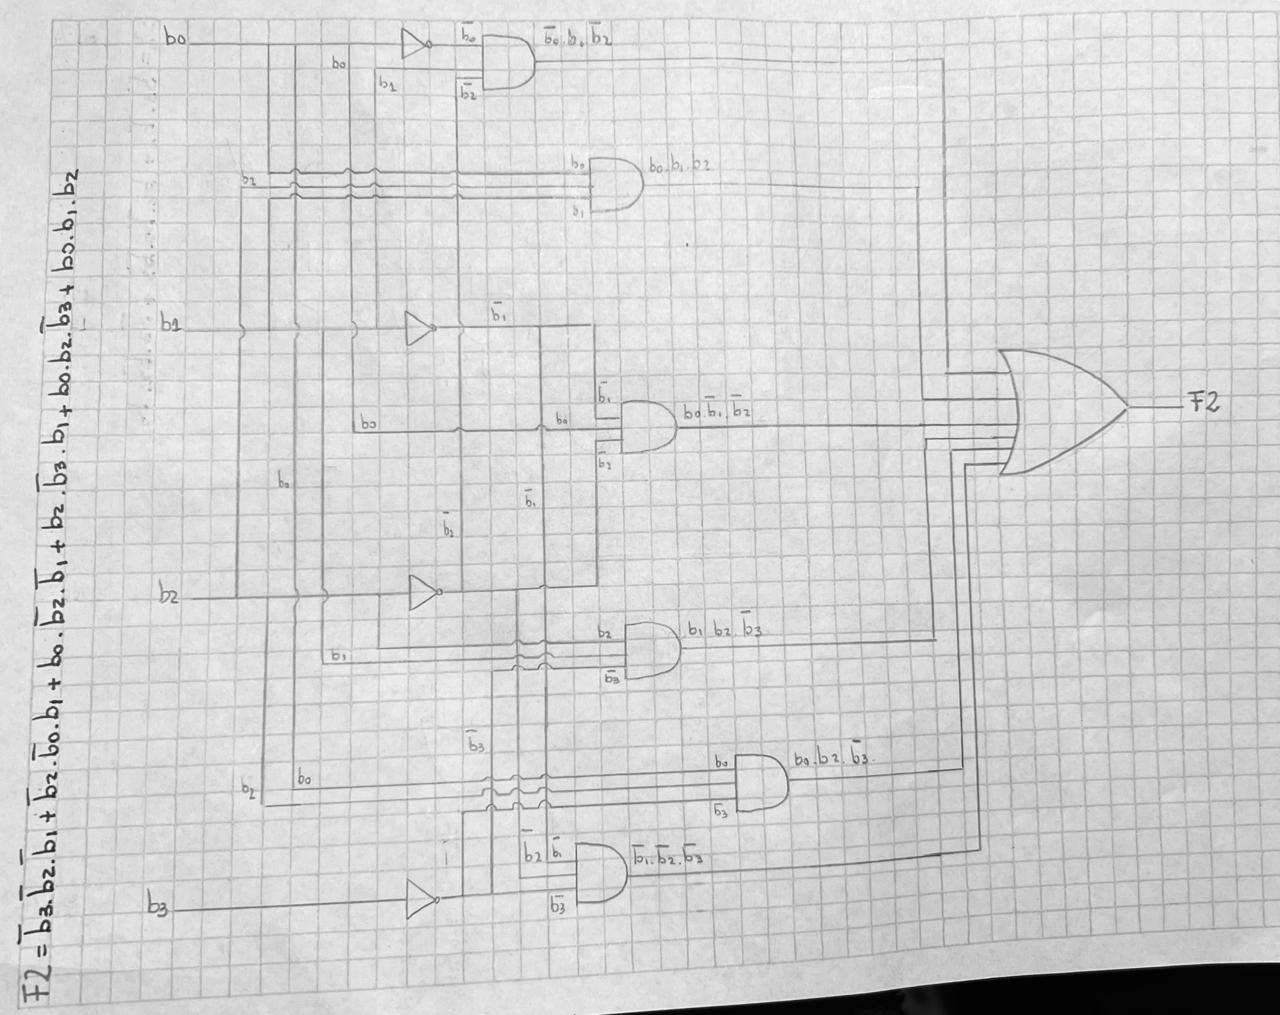 F2 = b̄3.b̄2.b̄1 + b̄2.b̄0.b1 + b0.b̄2.b̄1 + b2.b̄3.b1 + b0.b2.b̄3 + b0.b1.b2
b0
b̄0
b̄0.b1.b̄2
b0
b1
b̄2
b2
b0
b0.b1.b2
b1
b1
b̄1
b̄1
b0
b0
b0.b̄1.b̄2
F2
b̄2
b0
b̄1
b̄2
b2
b2
b1 b2.b̄3
b1
b̄3
b̄3
b0
b0.b2.b̄3.
b2
b0
b̄3
b̄2
b̄1
b̄1.b̄2.b̄3
b3
b̄3